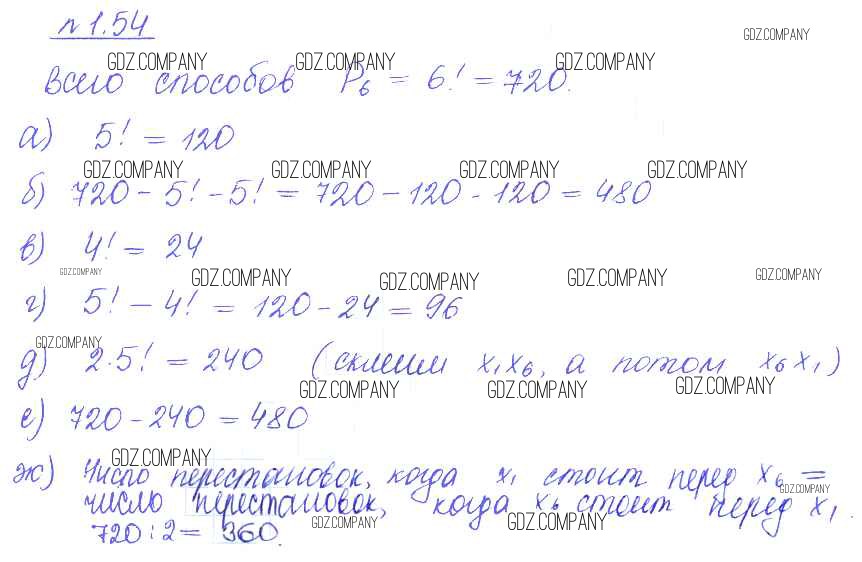 № 1.54
GDZ.COMPANY
GDZ.COMPANY GDZ.COMPANY GDZ.COMPANY
Всего способов P₆ = 6! = 720.
а) 5! = 120
GDZ.COMPANY GDZ.COMPANY GDZ.COMPANY GDZ.COMPANY
б) 720 - 5! - 5! = 720 - 120 - 120 = 480
в) 4! = 24
GDZ.COMPANY GDZ.COMPANY GDZ.COMPANY GDZ.COMPANY GDZ.COMPANY
г) 5! - 4! = 120 - 24 = 96
GDZ.COMPANY
д) 2·5! = 240 (склеим x₁x₆, а потом x₆x₁)
GDZ.COMPANY GDZ.COMPANY GDZ.COMPANY
е) 720 - 240 = 480
GDZ.COMPANY
ж) Число перестановок, когда x₁ стоит перед x₆ =
GDZ.COMPANY
число перестановок, когда x₆ стоит перед x₁.
GDZ.COMPANY GDZ.COMPANY
720 : 2 = 360.